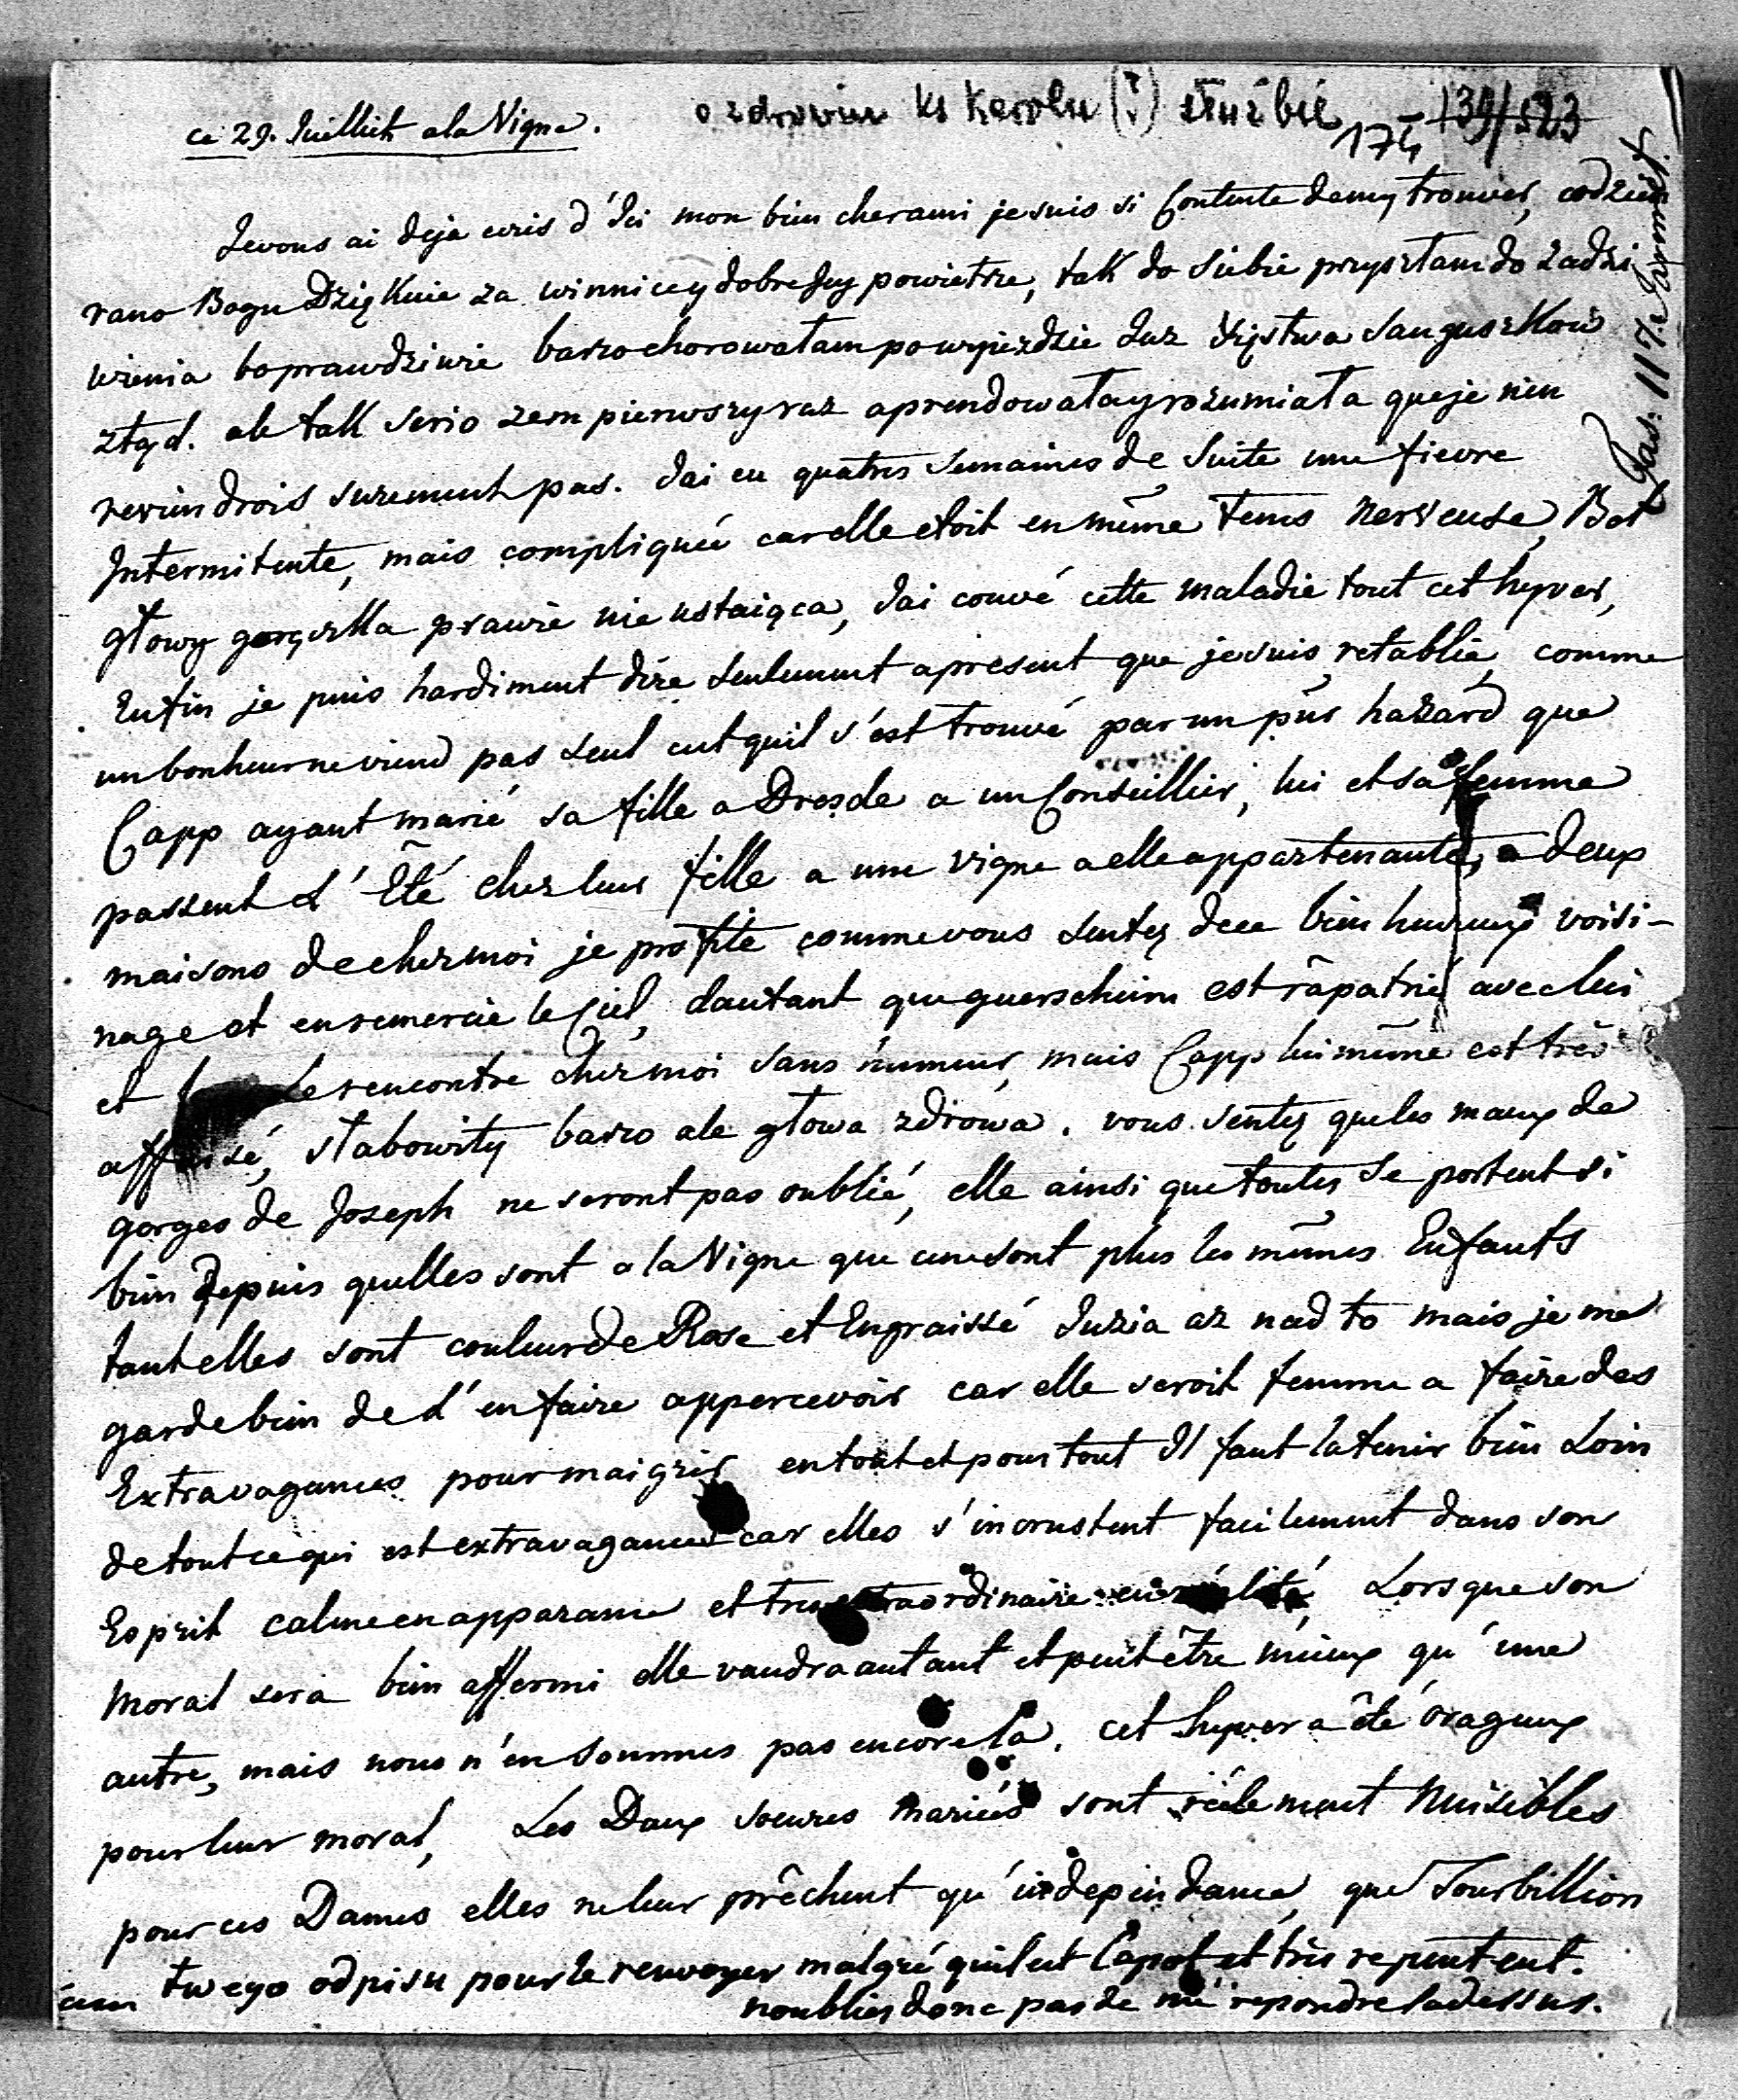 ce 29. Juillieth a la Vigne.
o zdrowiu ks Karolu (?) służbie
174 139/523
Jevous ai deja ecris d'Ici mon bien cherami je suis si Contente de my trouver, codzień
rano Bogu Dziękuie za winnicey dobre Jey powietrze, tak do Siebie przyszłam do zadzi
wienia bo prawdziwie barzo chorowałam po wyieździe Jusz Xięstwa Sanguszkow
ztąd. ale tak serio zem pierwszy raz aprendowała y rozumiała que je nen
reviendrois surement pas. Jai eu quatres Semaines de Suite une fievre
Intermitente, mais compliqueé car elle etoit en même tems nerveuse, Bol
głowy gorączka prawie nie ustaiąca, Jai couvé cette maladie tout cet hyver,
Enfin je puis hardiment dire seulement apresent que je suis retablie, comme
un bonheur ne viend pas seul cut quil s'est trouvé par un pûr hazard que
Capp ayant marié sa fille a Dresde a un Conseillier, lui et sa femme
passent L'Été chez leur fille a une vigne a elle appartenante, a deux
maisons de chez moi je profite comme vous sentez de ce bien heureux voisi-
nage et en remercie le Ciel, dautant que guerscheim est râpatrié avec lui
et le rencontre chez moi sans humeur, mais Capp lui même est très
affaisé, słabowity barzo ale głowa zdrowa. vous sentez que les maux de
gorges de Joseph ne seront pas oublié, elle ainsi que toutes Se portent si
bien Depuis quelles sont a la Vigne que cene sont plus les mêmes Enfants
tant elles sont couleur de Rose et Engraissé Juzia az nad to mais je me
garde bien de L'en faire appercevoir car elle seroit femme a faire des
Extravagances pour maigrir en tout et pour tout Il faut la tenir bien Loin
de tout ce qui est extravagances car elles s'incrustent facilement dans son
Esprit calme en apparance et tres extraordinaire en réalité, Lorsque son
Moral sera bien affermi elle vaudra autant et peut être mieux qu'une
autre, mais nous n'en sommes pas encore la. cet hyver a été orageux
pour leur moral, Les Deux soeures mariés sont réelement Nuisibles
pour ces Dames elles ne leur prêchent qu'independance, que Tourbillion
twego odpisu pour le renvoyer malgré quil est Capot et très repentent.
noublies donc pas de me repondre ladessus.